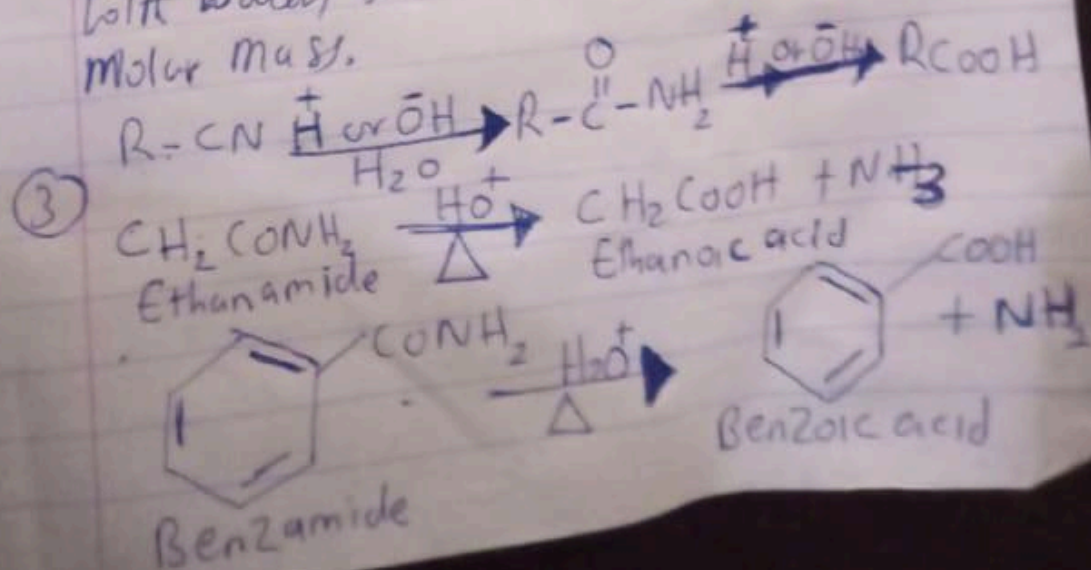 Molar mass.
R-CN H⁺ or ŌH / H₂O → R-C(=O)-NH₂ H⁺ or ŌH → RCOOH
③ CH₂CONH₂ HO⁺ / △ → CH₂COOH + NH₃
Ethanamide Ethanoic acid
CONH₂ H₂O⁺ / △ → COOH + NH
Benzamide Benzoic acid